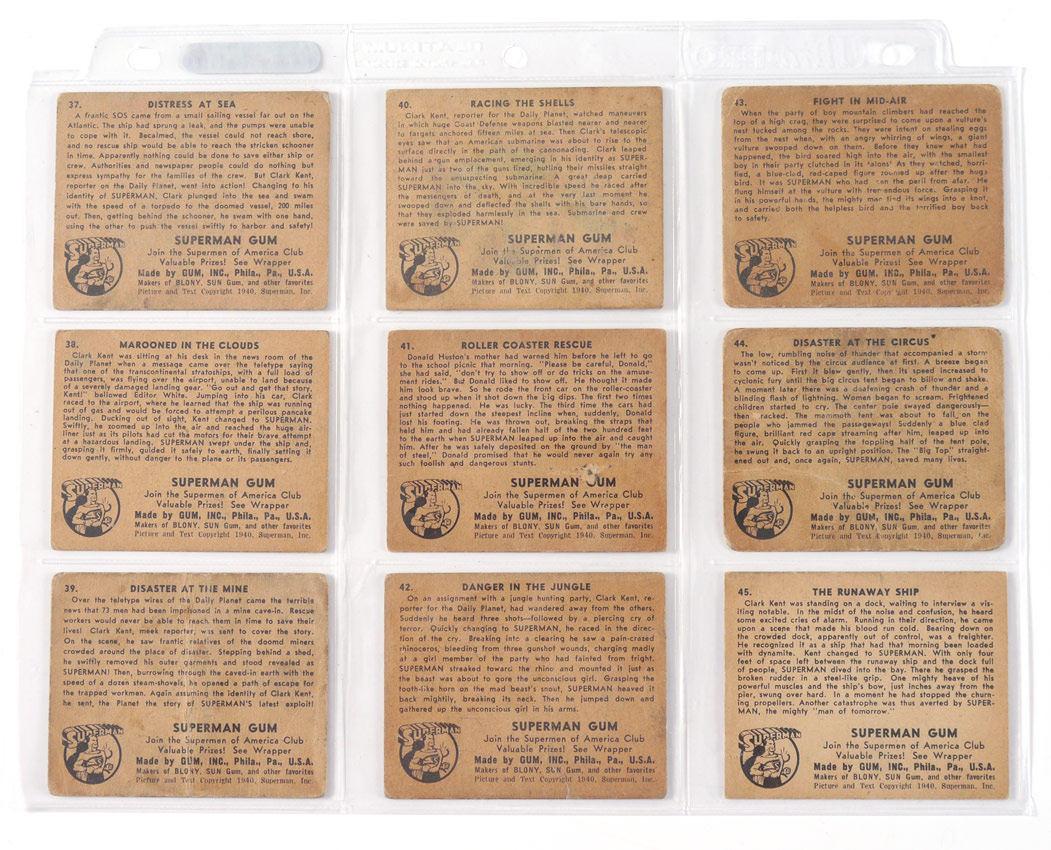 37. DISTRESS AT SEA
A frantic SOS came from a small sailing vessel far out on the
Atlantic. The ship had sprung a leak, and the pumps were unable
to cope with it. Becalmed, the vessel could not reach shore,
and no rescue ship would be able to reach the stricken schooner
in time. Apparently nothing could be done to save either ship or
crew. Authorities and newspaper people could do nothing but
express sympathy for the families of the crew. But Clark Kent,
reporter on the Daily Planet, went into action! Changing to his
identity of SUPERMAN, Clark plunged into the sea and swam
with the speed of a torpedo to the doomed vessel, 200 miles
out. Then, getting behind the schooner, he swam with one hand,
using the other to push the vessel swiftly to harbor and safety!
SUPERMAN
SUPERMAN GUM
Join the Supermen of America Club
Valuable Prizes! See Wrapper
Made by GUM, INC., Phila., Pa., U.S.A.
Makers of BLONY, SUN Gum, and other favorites
Picture and Text Copyright 1940, Superman, Inc.
40. RACING THE SHELLS
Clark Kent, reporter for the Daily Planet, watched maneuvers
in which huge Coast Defense weapons blasted nearer and nearer
to targets anchored fifteen miles at sea. Then Clark's telescopic
eyes saw that an American submarine was about to rise to the
surface directly in the path of the cannonading. Clark leaped
behind a gun emplacement, emerging in his identity as SUPER-
MAN just as two of the guns fired, hurling their missiles straight
toward the unsuspecting submarine. A great leap carried
SUPERMAN into the sky. With incredible speed he raced after
the messengers of death, and at the very last moment he
swooped down and deflected the shells with his bare hands, so
that they exploded harmlessly in the sea. Submarine and crew
were saved by SUPERMAN!
SUPERMAN
SUPERMAN GUM
Join the Supermen of America Club
Valuable Prizes! See Wrapper
Made by GUM, INC., Phila., Pa., U.S.A.
Makers of BLONY, SUN Gum, and other favorites
Picture and Text Copyright 1940, Superman, Inc.
43. FIGHT IN MID-AIR
When the party of boy mountain climbers had reached the
top of a high crag, they were surprised to come upon a vulture's
nest tucked among the rocks. They were intent on stealing eggs
from the nest when, with an angry whirring of wings, a giant
vulture swooped down on them. Before they knew what had
happened, the bird soared high into the air, with the smallest
boy in their party clutched in its talons! As they watched, horri-
fied, a blue-clad, red-caped figure zoomed up after the huge
bird. It was SUPERMAN who had seen the peril from afar. He
flung himself at the vulture with tremendous force. Grasping it
in his powerful hands, the mighty man tied its wings into a knot,
and carried both the helpless bird and the terrified boy back
to safety.
SUPERMAN
SUPERMAN GUM
Join the Supermen of America Club
Valuable Prizes! See Wrapper
Made by GUM, INC., Phila., Pa., U.S.A.
Makers of BLONY, SUN Gum, and other favorites
Picture and Text Copyright 1940, Superman, Inc.
38. MAROONED IN THE CLOUDS
Clark Kent was sitting at his desk in the news room of the
Daily Planet when a message came over the teletype saying
that one of the transcontinental stratoships, with a full load of
passengers, was flying over the airport, unable to land because
of a severely damaged landing gear. "Go out and get that story,
Kent!" bellowed Editor White. Jumping into his car, Clark
raced to the airport, where he learned that the ship was running
out of gas and would be forced to attempt a perilous pancake
landing. Ducking out of sight, Kent changed to SUPERMAN.
Swiftly, he zoomed up into the air and reached the huge air-
liner just as its pilots had cut the motors for their brave attempt
at a crash landing. SUPERMAN swept under the ship and,
grasping it firmly, guided it safely to earth, finally setting it
down gently, without danger to the plane or its passengers.
SUPERMAN
SUPERMAN GUM
Join the Supermen of America Club
Valuable Prizes! See Wrapper
Made by GUM, INC., Phila., Pa., U.S.A.
Makers of BLONY, SUN Gum, and other favorites
Picture and Text Copyright 1940, Superman, Inc.
41. ROLLER COASTER RESCUE
Donald Huston's mother had warned him before he left to go
to the school picnic that morning. "Please be careful, Donald,"
she had said, "don't try to show off or do tricks on the amuse-
ment rides." But Donald liked to show off. He thought it made
him look brave. So he rode the front car on the roller-coaster
and stood up when it shot down the big dips. The first two times
nothing happened. He was lucky. The third time the cars had
just started down the steepest incline when, suddenly, Donald
lost his footing. He was thrown out, breaking the straps that
held him and had already fallen half of the two hundred feet
to the earth when SUPERMAN leaped up into the air and caught
him. After he was safely deposited on the ground by "the man
of steel," Donald promised that he would never again try any
such foolish and dangerous stunts.
SUPERMAN
SUPERMAN GUM
Join the Supermen of America Club
Valuable Prizes! See Wrapper
Made by GUM, INC., Phila., Pa., U.S.A.
Makers of BLONY, SUN Gum, and other favorites
Picture and Text Copyright 1940, Superman, Inc.
44. DISASTER AT THE CIRCUS
The low, rumbling noise of thunder that accompanied a storm
wasn't noticed by the circus audience at first. A breeze began
to come up. First it blew gently, then its speed increased to
cyclonic fury until the big circus tent began to billow and shake.
A moment later there was a deafening crash of thunder and a
blinding flash of lightning. Women began to scream. Frightened
children started to cry. The center pole swayed dangerously—
then cracked. The mammoth tent was about to fall on the
people who jammed the passageways! Suddenly a blue clad
figure, brilliant red cape streaming after him, leaped up into
the air. Quickly grasping the toppling half of the tent pole,
he swung it back to an upright position. The "Big Top" straight-
ened out and, once again, SUPERMAN, saved many lives.
SUPERMAN
SUPERMAN GUM
Join the Supermen of America Club
Valuable Prizes! See Wrapper
Made by GUM, INC., Phila., Pa., U.S.A.
Makers of BLONY, SUN Gum, and other favorites
Picture and Text Copyright 1940, Superman, Inc.
39. DISASTER AT THE MINE
Over the teletype wires of the Daily Planet came the terrible
news that 73 men had been imprisoned in a mine cave-in. Rescue
workers would never be able to reach them in time to save their
lives! Clark Kent, meek reporter, was sent to cover the story.
On the scene, he saw frantic relatives of the doomd miners
crowded around the place of disaster. Stepping behind a shed,
he swiftly removed his outer garments and stood revealed as
SUPERMAN! Then, burrowing through the caved-in earth with the
speed of a dozen steam-shovels, he opened a path of escape for
the trapped workmen. Again assuming the identity of Clark Kent,
he sent, the Planet the story of SUPERMAN'S latest exploit!
SUPERMAN
SUPERMAN GUM
Join the Supermen of America Club
Valuable Prizes! See Wrapper
Made by GUM, INC., Phila., Pa., U.S.A.
Makers of BLONY, SUN Gum, and other favorites
Picture and Text Copyright 1940, Superman, Inc.
42. DANGER IN THE JUNGLE
On an assignment with a jungle hunting party, Clark Kent, re-
porter for the Daily Planet, had wandered away from the others.
Suddenly he heard three shots—followed by a piercing cry of
terror. Quickly changing to SUPERMAN, he raced in the direc-
tion of the cry. Breaking into a clearing he saw a pain-crazed
rhinoceros, bleeding from three gunshot wounds, charging madly
at a girl member of the party who had fainted from fright.
SUPERMAN streaked toward the rhino and mounted it just as
the beast was about to gore the unconscious girl. Grasping the
tooth-like horn on the mad beast's snout, SUPERMAN heaved it
back mightily, breaking its neck. Then he jumped down and
gathered up the unconscious girl in his arms.
SUPERMAN
SUPERMAN GUM
Join the Supermen of America Club
Valuable Prizes! See Wrapper
Made by GUM, INC., Phila., Pa., U.S.A.
Makers of BLONY, SUN Gum, and other favorites
Picture and Text Copyright 1940, Superman, Inc.
45. THE RUNAWAY SHIP
Clark Kent was standing on a dock, waiting to interview a vis-
iting notable. In the midst of the noise and confusion, he heard
some excited cries of alarm. Running in their direction, he came
upon a scene that made his blood run cold. Bearing down on
the crowded dock, apparently out of control, was a freighter.
He recognized it as a ship that had that morning been loaded
with dynamite. Kent changed to SUPERMAN. With only four
feet of space left between the runaway ship and the dock full
of people, SUPERMAN dived into the bay. There he grasped the
broken rudder in a steel-like grip. One mighty heave of his
powerful muscles and the ship's bow, just inches away from the
pier, swung over hard. In a moment he had stopped the churn-
ing propellers. Another catastrophe was thus averted by SUPER-
MAN, the mighty "man of tomorrow."
SUPERMAN
SUPERMAN GUM
Join the Supermen of America Club
Valuable Prizes! See Wrapper
Made by GUM, INC., Phila., Pa., U.S.A.
Makers of BLONY, SUN Gum, and other favorites
Picture and Text Copyright 1940, Superman, Inc.